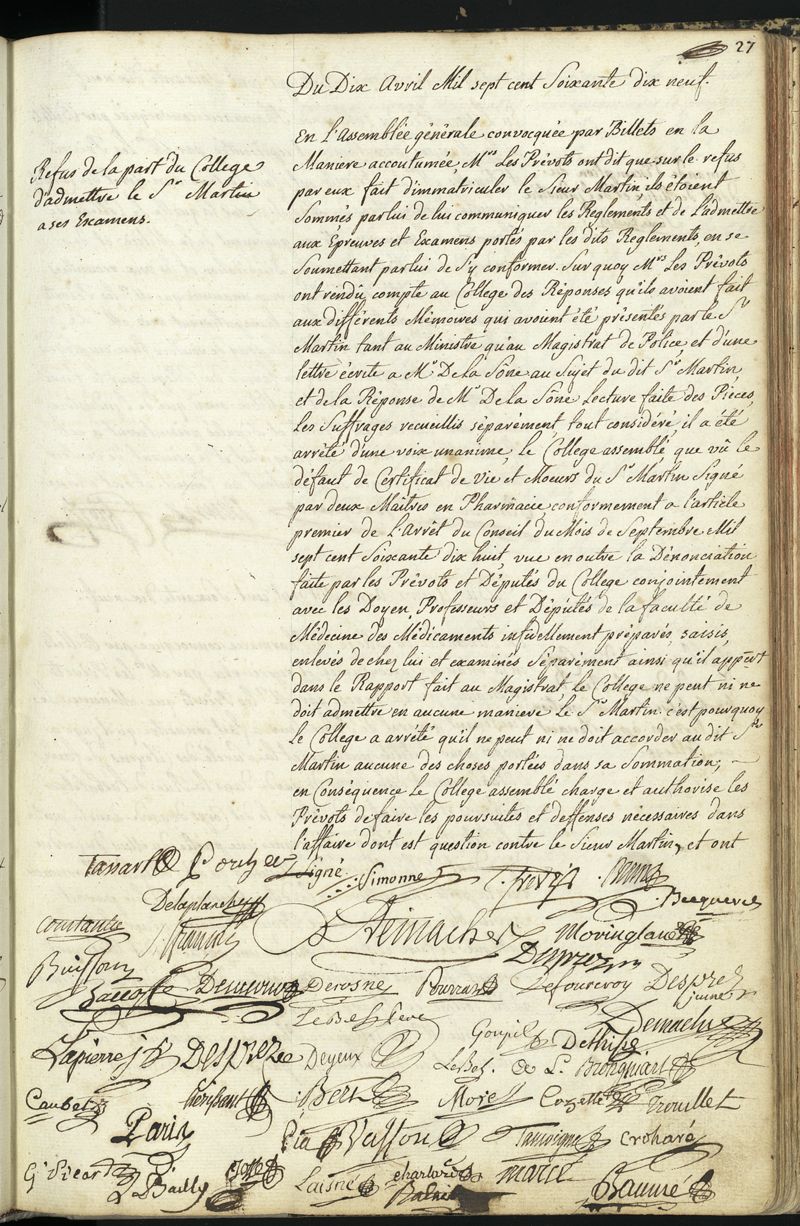 27
Du Dix Avril Mil sept cent Soixante dix neuf.
Refus de la part du College
d'admettre le Sr Martin
a ses Examens.
En L'Assemblée générale convocquée par Billets en la
Maniere accoutumée, Mrs Les Prévots ont dit que sur le refus
par eux fait d'immatriculer le Sieur Martin, ils étoient
Sommés par lui de lui communiquer les Reglements et de L'admettre
aux Epreuves et Examens portés par les dits Reglements, en se
Soumettant par lui de S'y conformer. Sur quoy Mrs Les Prévots
ont rendû compte au College des Réponses qu'ils avoient fait
aux différents Mémoires qui avoient été présentés par le Sr
Martin tant au Ministre qu'au Magistrat de Police, et d'une
lettre écrite a Mr De la Sône au Sujet du dit Sr Martin,
et de la Réponse de Mr De la Sône Lecture faite des Pièces,
Les Suffrages recueillis séparément, tout considéré, il a été
arrêté d'une voix unanime, le College assemblé, que vû le
défaut de Certificat de Vie et Moeurs du Sr Martin Signé
par deux Maîtres en Pharmacie, conformement a l'article
premier de L'Arrêt du Conseil du Mois de Septembre Mil
sept cent Soixante dix huit, vue en outre la Dénonciation
faite par les Prévots et Députés du College conjointement
avec les Doyen, Professeurs et Députés de la faculté de
Médecine des Médicaments infidellement préparés, saisis,
enlevés de chez lui et examinés Séparément ainsi qu'il appert
dans le Rapport fait au Magistrat, Le College ne peut ni ne
doit admettre en aucune maniere Le Sr Martin. c'est pourquoy
Le College a arrêté qu'il ne peut ni ne doit accorder au dit Sr
Martin aucune des choses portées dans sa Sommation;
en Conséquence Le College assemblé charge et authorise les
Prévots de faire les poursuites et deffenses nécessaires dans
l'affaire dont est question contre le Sieur Martin, et ont
Signé.
Tassart Simonnet
Delaplanche Becqueret
Constant
Buisson
Derosne Lefourcroy Desprez
jeune
Goupil Demachy
Lapierre Desprez Deyeux Brongniart
Caubet Morel Cozette Trouillet
Paris Pia Tauvigne Croharé
G. Picard L. Bailly Josse Laisné Charlard Marce Baumé